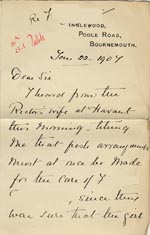 INGLEWOOD,
POOLE ROAD,
BOURNEMOUTH.
Jan 22 1907
Dear Sir
I heard from the
Rector's wife at Havant
this morning - telling
me that fresh arrangements
must at once be made
for the care of
, since they
were sure that the girl